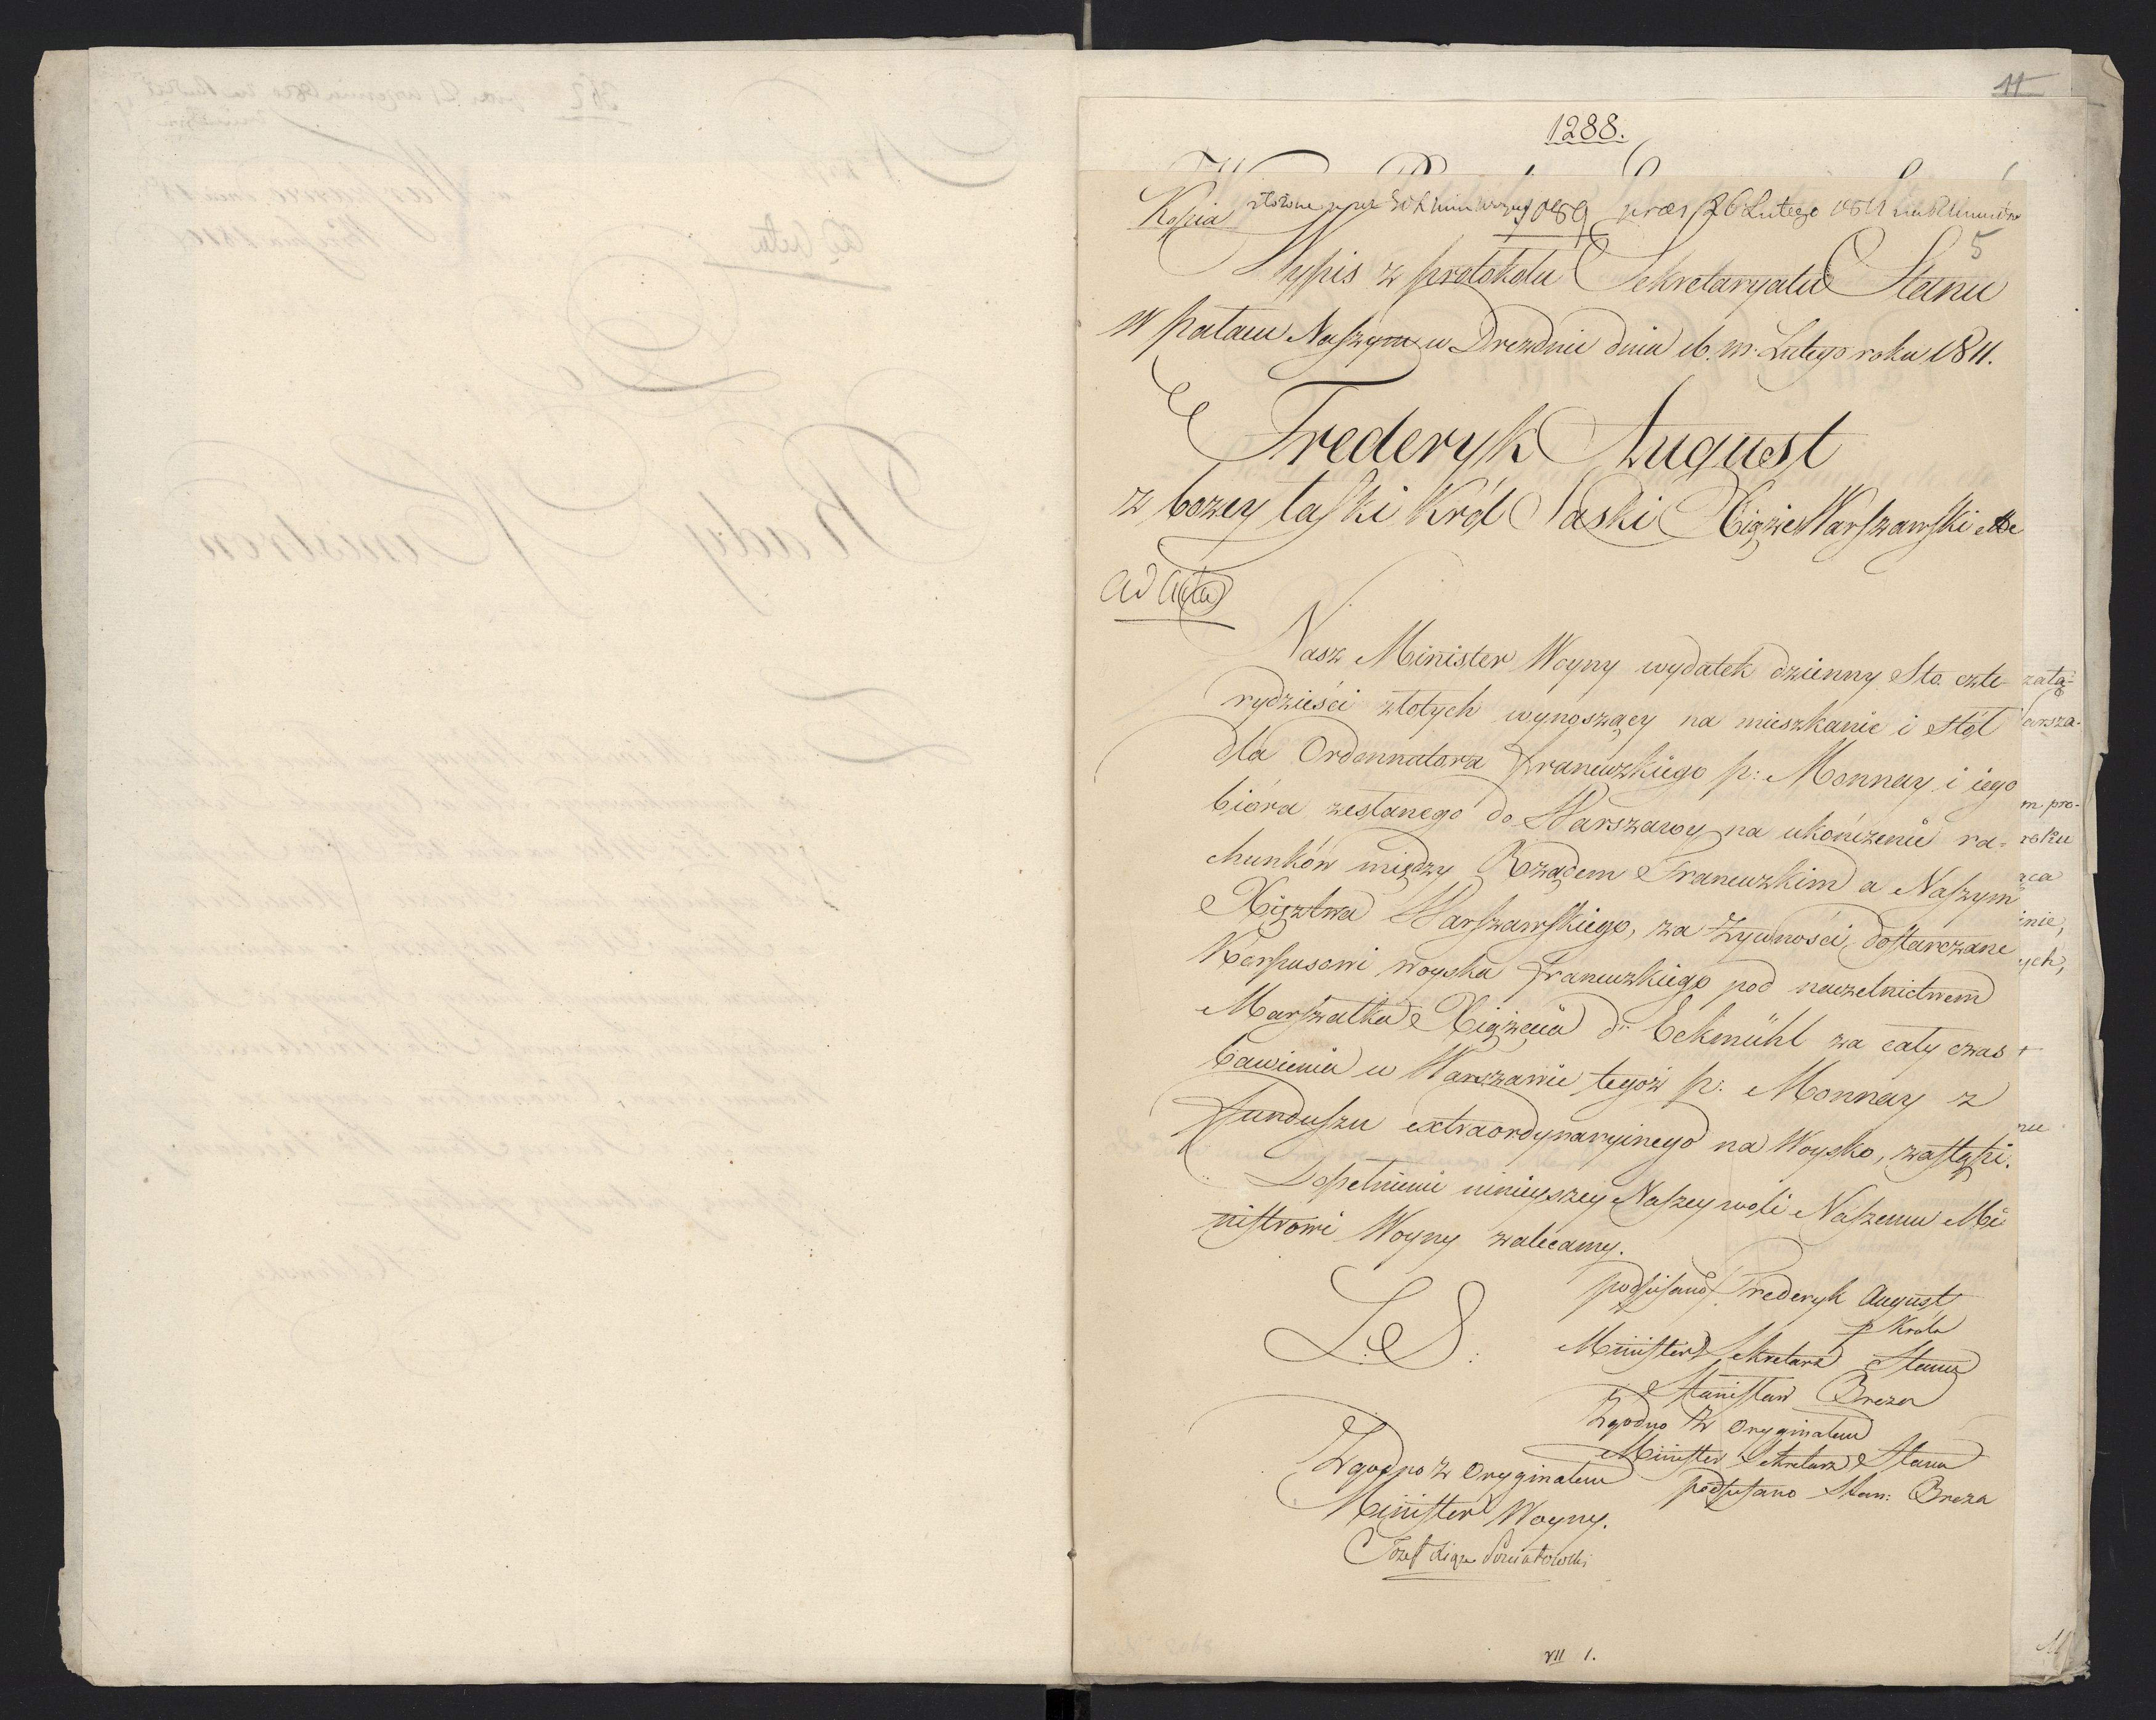 11
1288.
Kopia złożona przez 1089 26 Lutego 1811
5
Wypis z protokołu Sekretaryatu Stanu
w pałacu Naszym w Dreznie dnia 16. m: Lutego roku 1811.
Frederyk August
z bożey łaski Król Saski Xiąże Warszawski etc
ad acta
Nasz Minister Woyny wydatek dzienny Sto czte
rydzieści złotych wynoszący na mieszkanie i stół
dla Ordonnatora Francuzkiego p: Monnay i iego
bióra zesłanego do Warszawy na ukończenie ra-
chunków między Rządem Francuzkim a Naszym
Xięztwa Warszawskiego, za żywności dostarczane
Korpusowi woyska Francuzkiego pod naczelnictwem
Marszałka Xiążęcia d' Eckmühl za cały czas
bawienia w Warszawie tegoż p: Monnay z
funduszu extraordynaryinego na Woysko, zastąpi.
Dopełnienie ninieyszey Naszey woli Naszemu Mi
nistrowi Woyny zalecamy.
L: S:
podpisano Frederyk August
p Króla
Minister Sekretarz Stanu
Stanisław Breza
Zgodno z Oryginałem
Minister Sekretarz Stanu
podpisano Stan: Breza
Zgodno z Oryginałem
Minister Woyny.
Józef Xiąże Poniatowski
VII 1.
zata-
arsza-
m pro-
roku
ąca
inie,
ych,
nu